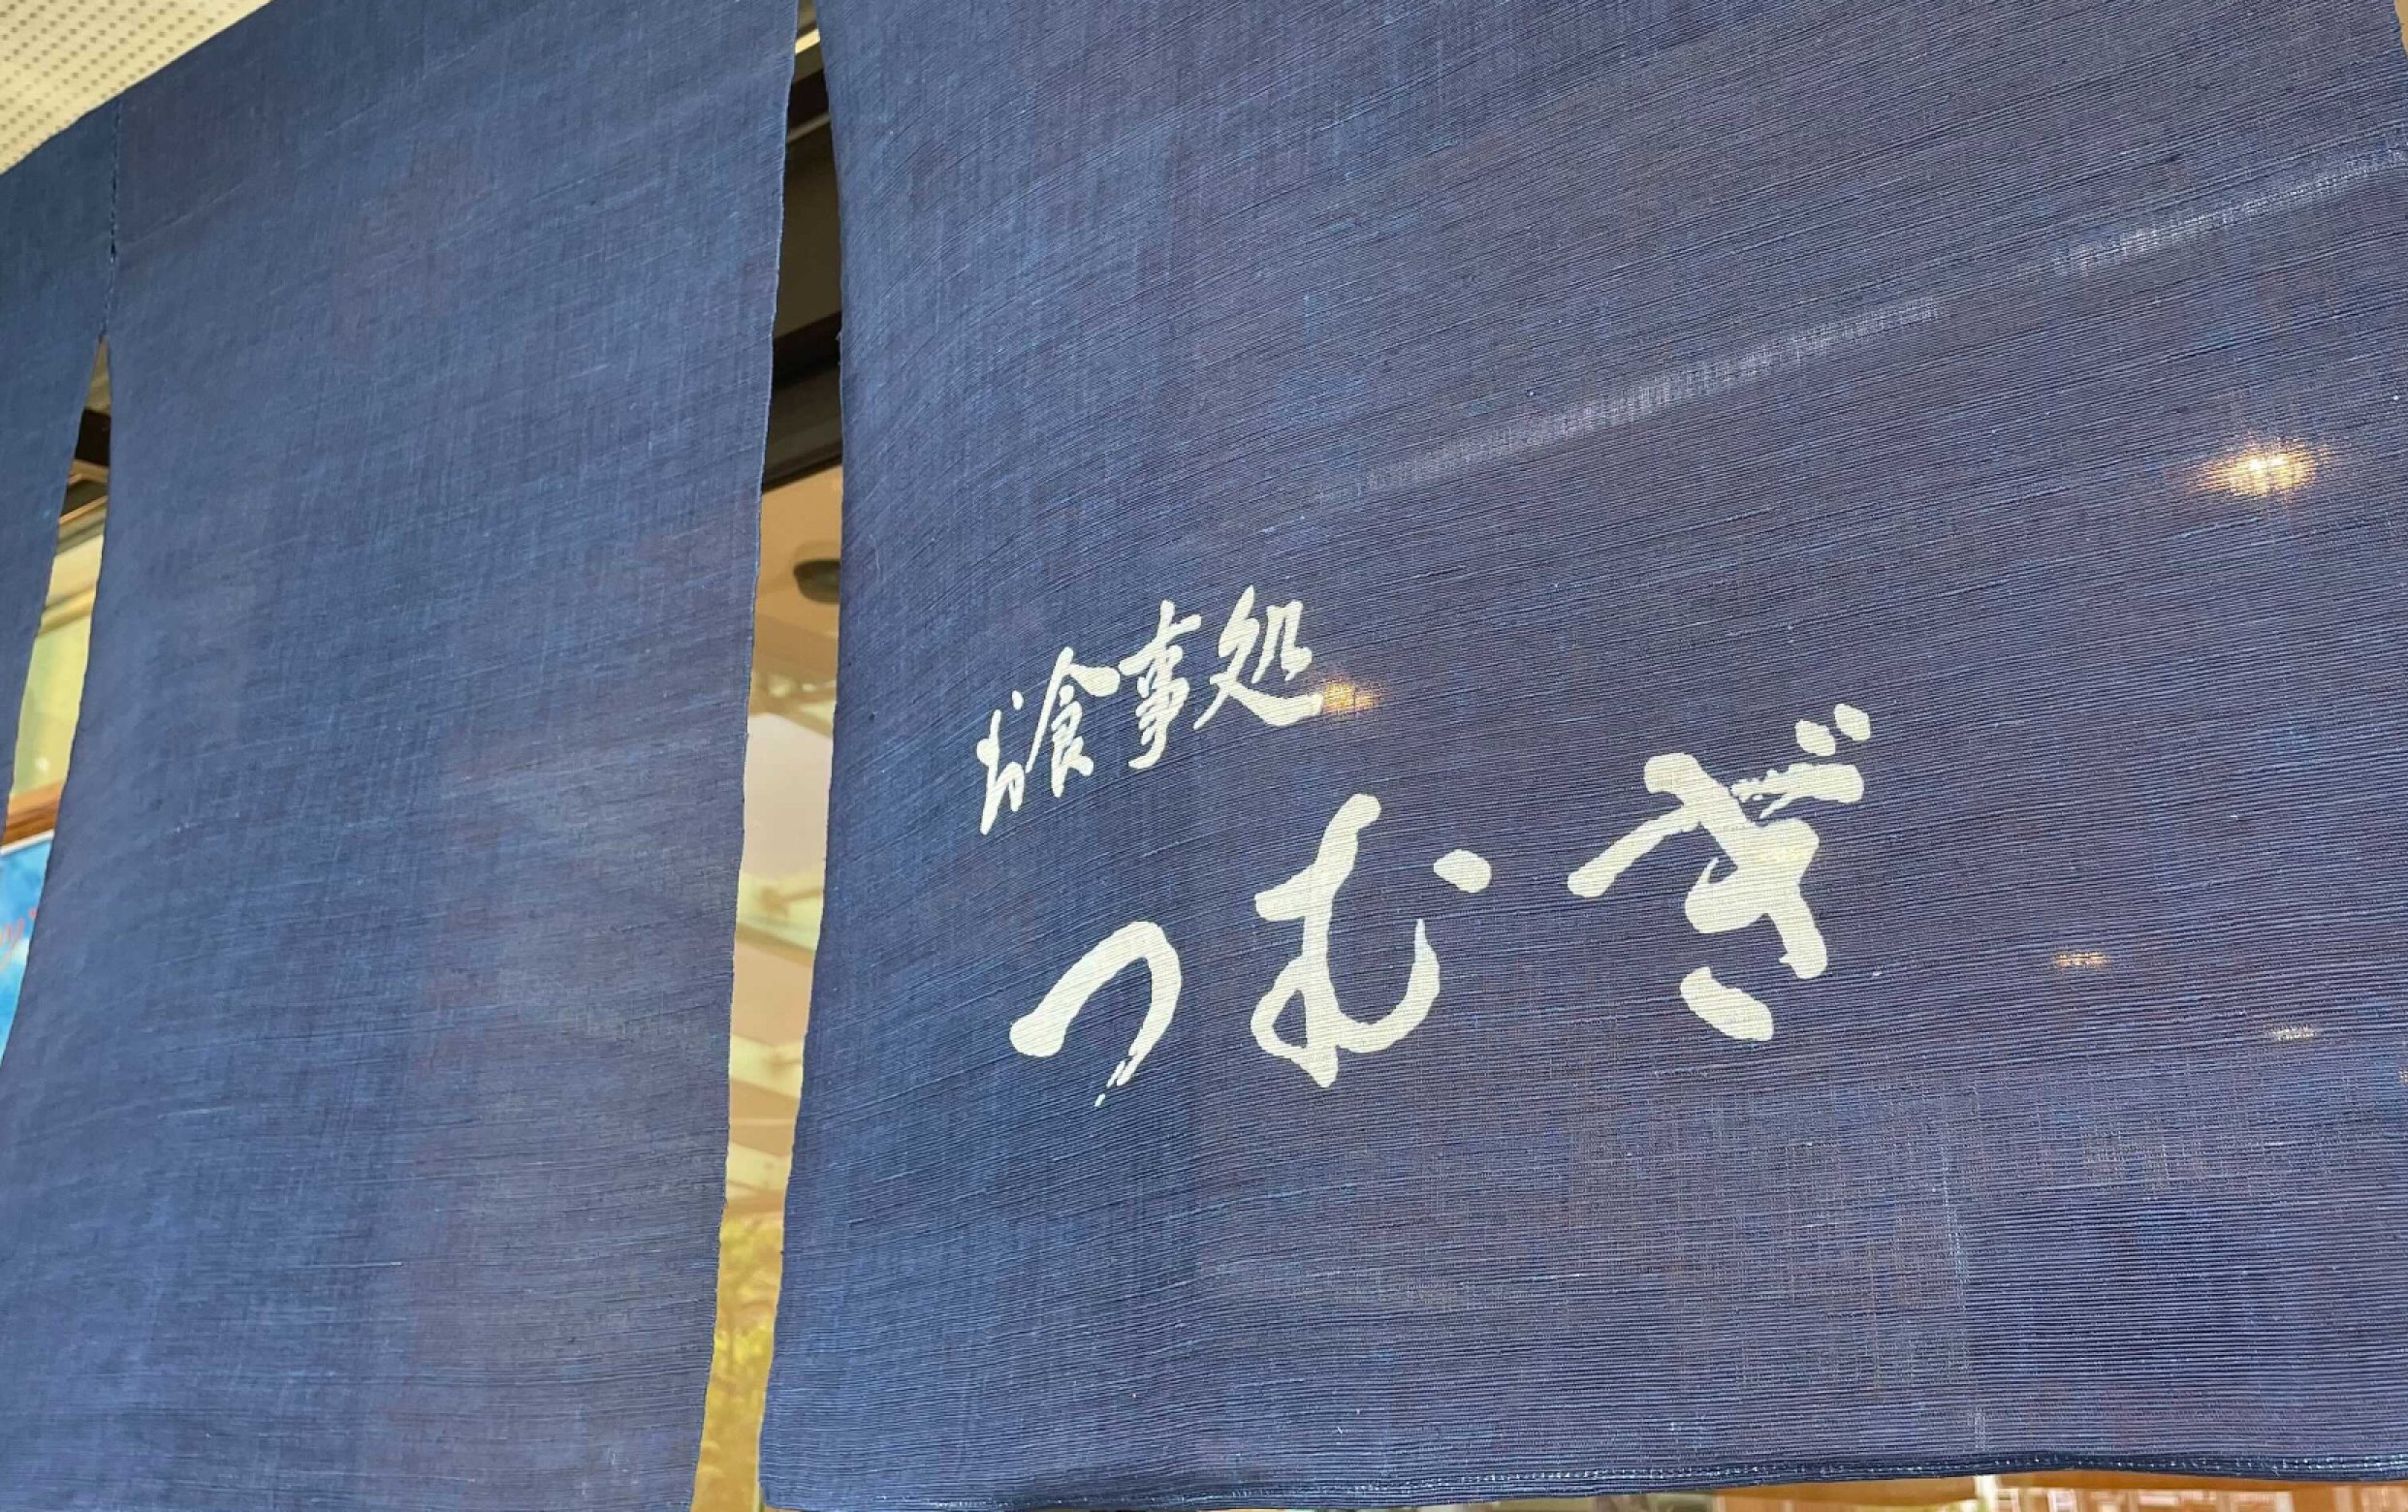 お食事処
つむぎ